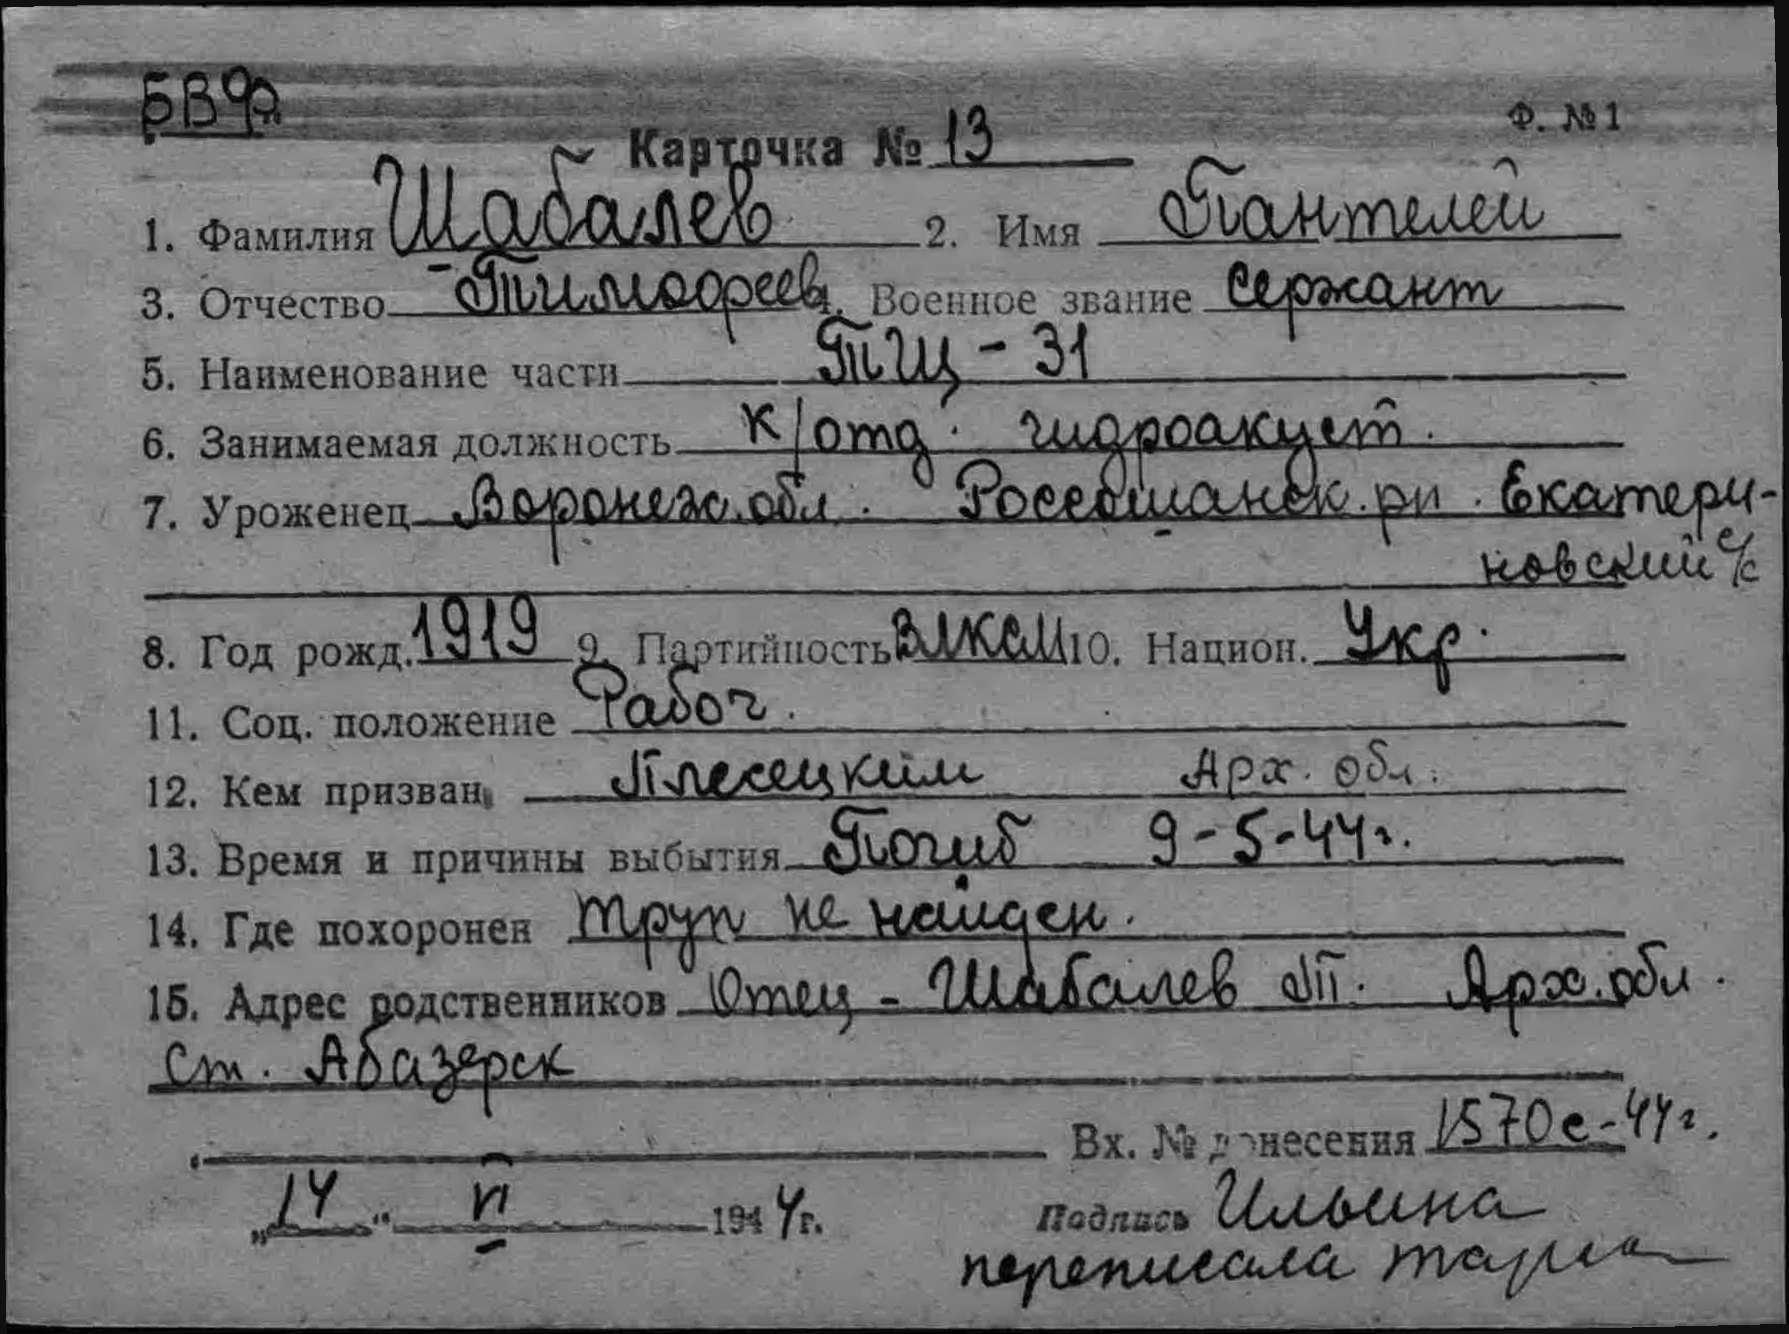 БВФ
Ф. №1
Карточка № 13
1. Фамилия Шабалев 2. Имя Пантелей
3. Отчество Тимофеев 4. Военное звание Сержант
5. Наименование части ТЩ - 31
6. Занимаемая должность К/отд. гидроакуст.
7. Уроженец Воронеж. обл. Россошанск. рн. Екатери-
новский с/с
8. Год рожд. 1919 9. Партийность ВЛКСМ 10. Национ. Укр.
11. Соц. положение Рабоч.
12. Кем призван Плесецким Арх. обл.
13. Время и причины выбытия Погиб 9-5-44г.
14. Где похоронен труп не найден.
15. Адрес родственников Отец - Шабалев Т. Арх. обл.
ст. Абазерск
Вх. № донесения 1570с-44г.
„14" VI 1944г. Подпись Ильина
переписала